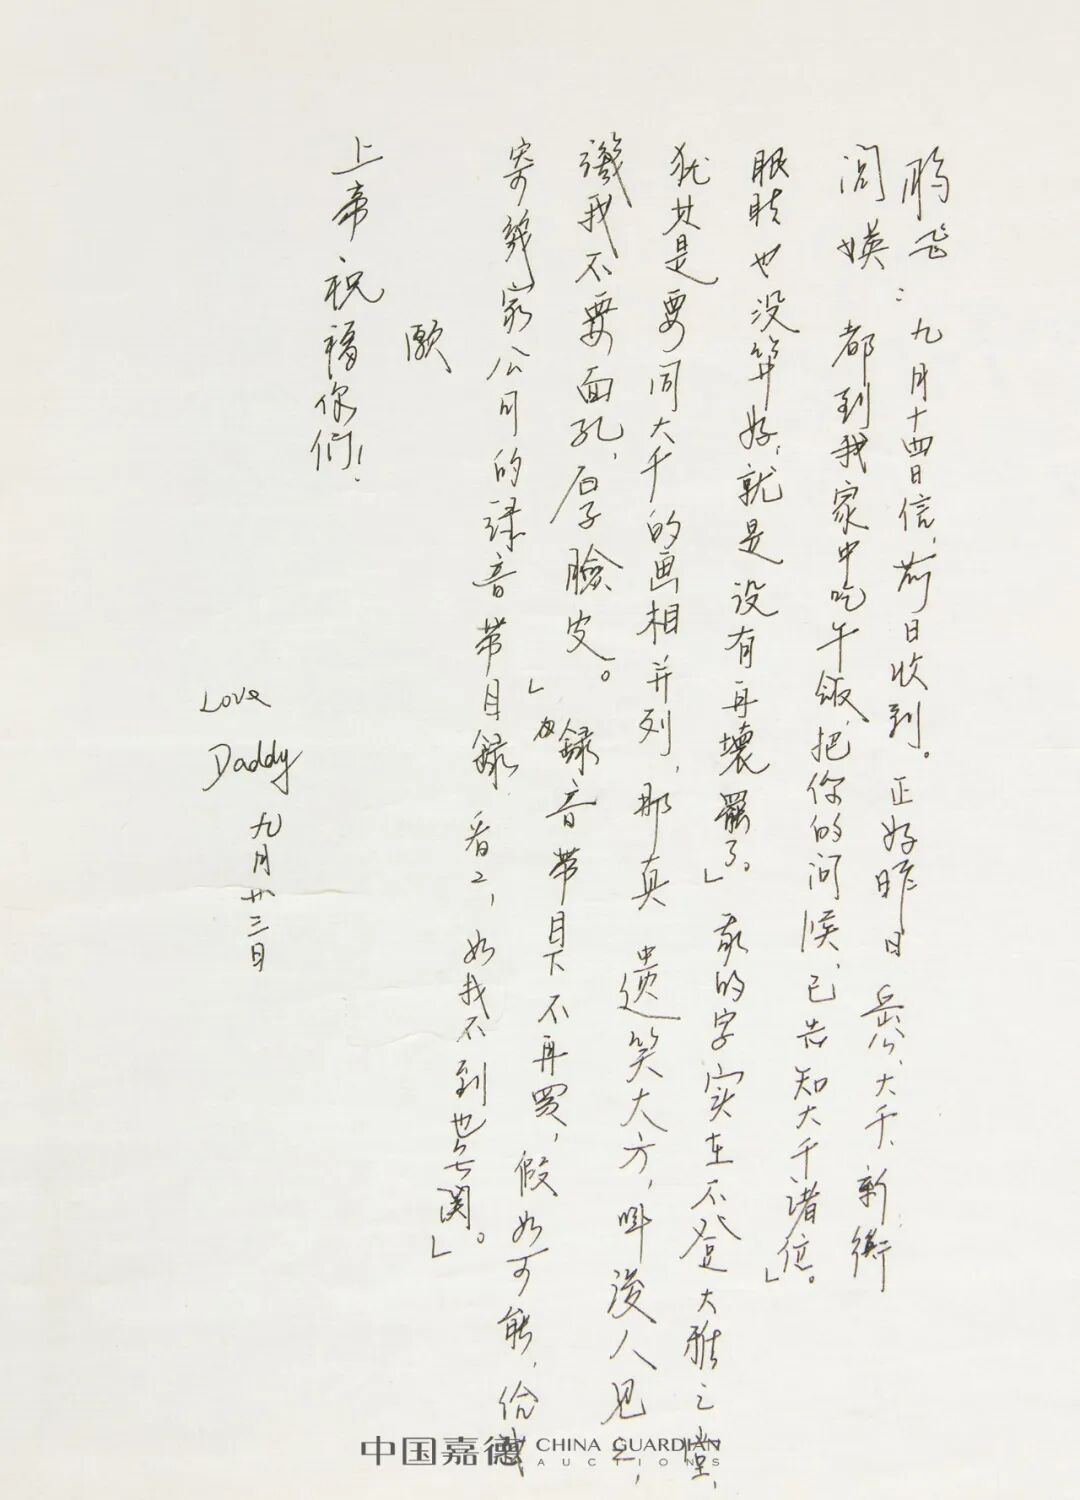 鵬飞
閭媖：九月十四日信，前日收到。正好昨日岳公、大千、新衡
都到我家中吃午飯，把你的问候，已告知大千諸位。」
眼睛也没算好，就是没有再壞罷了。」我的字实在不登大雅之堂，
犹其是要同大千的画相并列，那真遗笑大方，叫後人見之，
譏我不要面孔，厚子臉皮。」錄音带目下不再買，假如可能，給我
寄幾家公司的录音带目錄看之，如找不到也無関。」
願
上帝祝福你们！
Love
Daddy
九月廿三日
中国嘉德 CHINA GUARDIAN
AUCTIONS